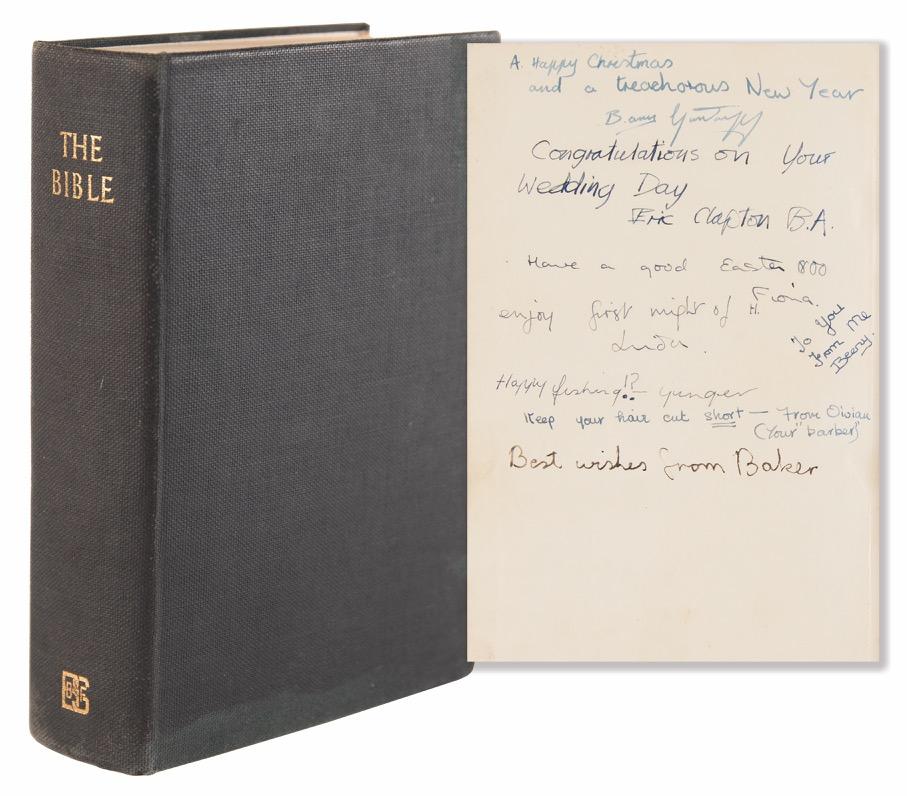 THE
BIBLE
A Happy Christmas
and a treachorous New Year
Congratulations on Your
Wedding Day
Eric Clapton B.A.
Have a good Easter 800
Fiona.
enjoy first night of H.
Linda.
To You
from Me
Beany.
Happy fishing!? younger
Keep your hair cut short — From Oivian
(Your "barber")
Best wishes from Baker